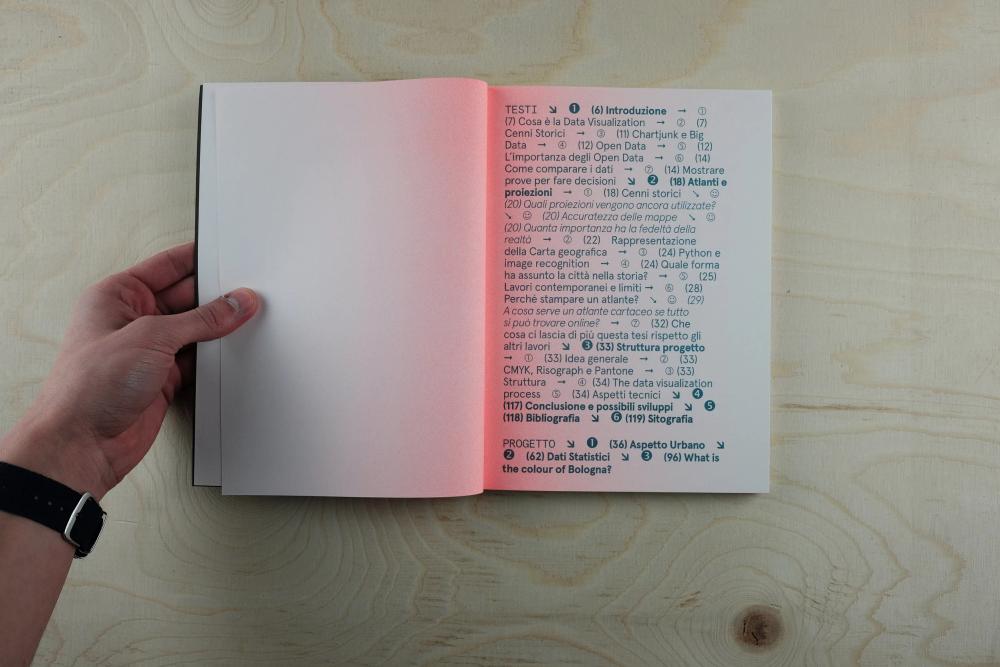 TESTI ↘ ❶ (6) Introduzione → ①
(7) Cosa è la Data Visualization → ② (7)
Cenni Storici → ③ (11) Chartjunk e Big
Data → ④ (12) Open Data → ⑤ (12)
L'importanza degli Open Data → ⑥ (14)
Come comparare i dati → ⑦ (14) Mostrare
prove per fare decisioni ↘ ❷ (18) Atlanti e
proiezioni → ① (18) Cenni storici ↘ ☺
(20) Quali proiezioni vengono ancora utilizzate?
↘ ☺ (20) Accuratezza delle mappe ↘ ☺
(20) Quanta importanza ha la fedeltà della
realtà → ② (22) Rappresentazione
della Carta geografica → ③ (24) Python e
image recognition → ④ (24) Quale forma
ha assunto la città nella storia? → ⑤ (25)
Lavori contemporanei e limiti → ⑥ (28)
Perché stampare un atlante? ↘ ☺ (29)
A cosa serve un atlante cartaceo se tutto
si può trovare online? → ⑦ (32) Che
cosa ci lascia di più questa tesi rispetto gli
altri lavori ↘ ❸ (33) Struttura progetto
→ ① (33) Idea generale → ② (33)
CMYK, Risograph e Pantone → ③ (33)
Struttura → ④ (34) The data visualization
process ⑤ (34) Aspetti tecnici ↘ ❹
(117) Conclusione e possibili sviluppi ↘ ❺
(118) Bibliografia ↘ ❻ (119) Sitografia
PROGETTO ↘ ❶ (36) Aspetto Urbano ↘
❷ (62) Dati Statistici ↘ ❸ (96) What is
the colour of Bologna?